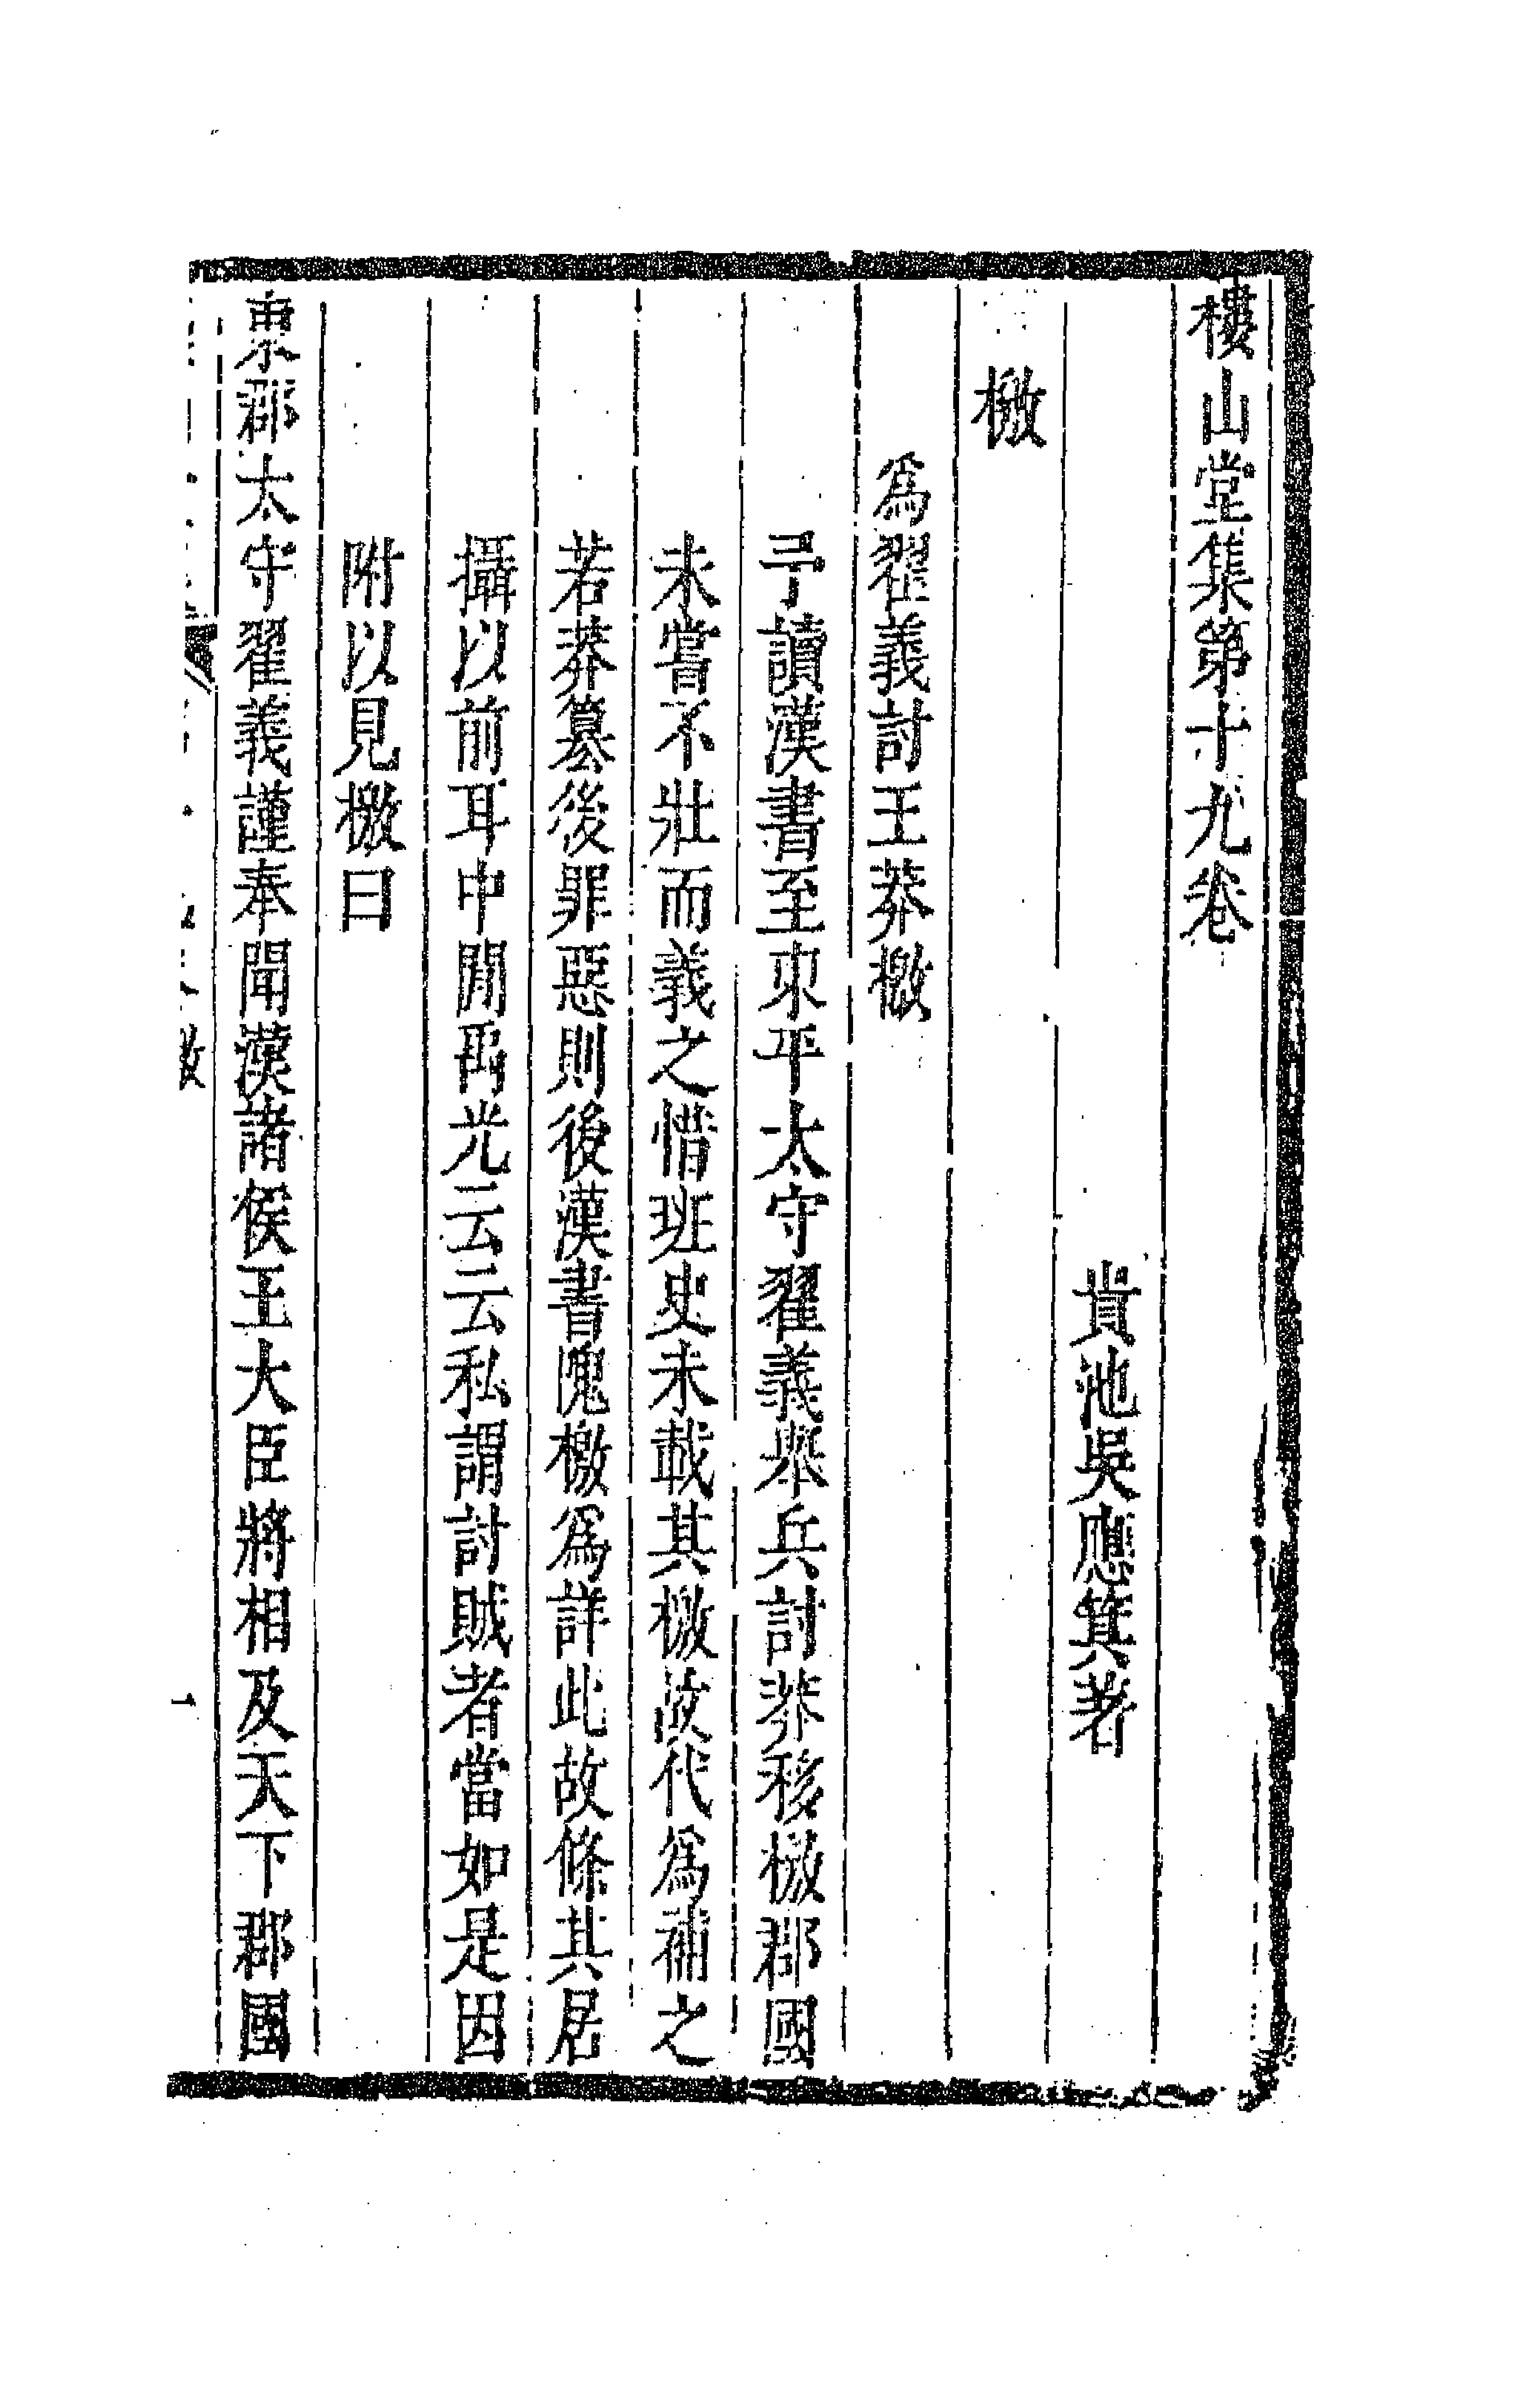 樓山堂集第十九卷
貴池吳應箕著
檄
爲翟義討王莽檄
予讀漢書至東平太守翟義舉兵討莽移檄郡國
未嘗不壯而義之惜班史未載其檄故代爲補之
若莽篡後罪惡則後漢書隗檄爲詳此故條其居
攝以前耳中閒禹光云云私謂討賊者當如是因
附以見檄曰
東郡太守翟義謹奉聞漢諸侯王大臣將相及天下郡國